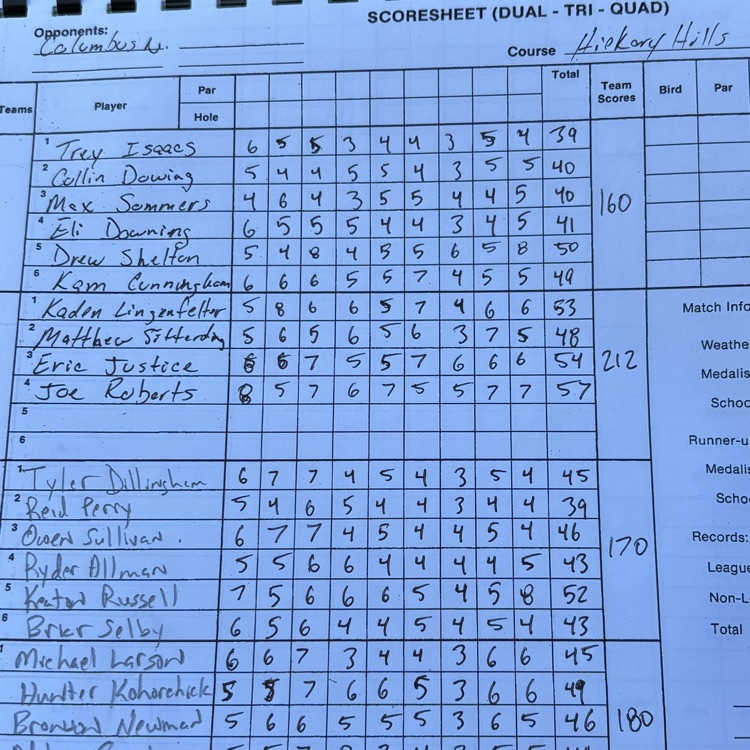 SCORESHEET (DUAL - TRI - QUAD)
Opponents:
Columbus N.
Course Hickory Hills
Teams Player Par Hole Total Team Scores Bird Par
1 Trey Isaacs 6 5 5 3 4 4 3 5 4 39
2 Collin Dowing 5 4 4 5 5 4 3 5 5 40
3 Max Sommers 4 6 4 3 5 5 4 4 5 40 160
4 Eli Downing 6 5 5 5 4 4 3 4 5 41
5 Drew Shelton 5 4 8 4 5 5 6 5 8 50
6 Kam Cunningham 6 6 6 5 5 7 4 5 5 49
1 Kaden Lingenfelter 5 8 6 6 5 7 4 6 6 53
Match Info
2 Matthew 5 6 5 6 5 6 3 7 5 48
Weathe
3 Eric Justice 6 6 7 5 5 7 6 6 6 54 212
Medalis
4 Joe Roberts 8 5 7 6 7 5 5 7 7 57
Schoo
5
6
Runner-u
1 Tyler Dillingham 6 7 7 4 5 4 3 5 4 45
Medalis
2 Reid Perry 5 4 6 5 4 4 3 4 4 39
Scho
3 Owen Sullivan . 6 7 7 4 5 4 4 5 4 46 170
Records:
4 Ryder Allman 5 5 6 6 4 4 4 4 5 43
League
5 Keaton Russell 7 5 6 6 6 5 4 5 8 52
Non-L
6 Briar Selby 6 5 6 4 4 5 4 5 4 43
Total
1 Michael Larson 6 6 7 3 4 4 3 6 6 45
Hunter Kohorchick 5 5 7 6 6 5 3 6 6 49
Bronson Newman 5 6 6 5 5 5 3 6 5 46 180